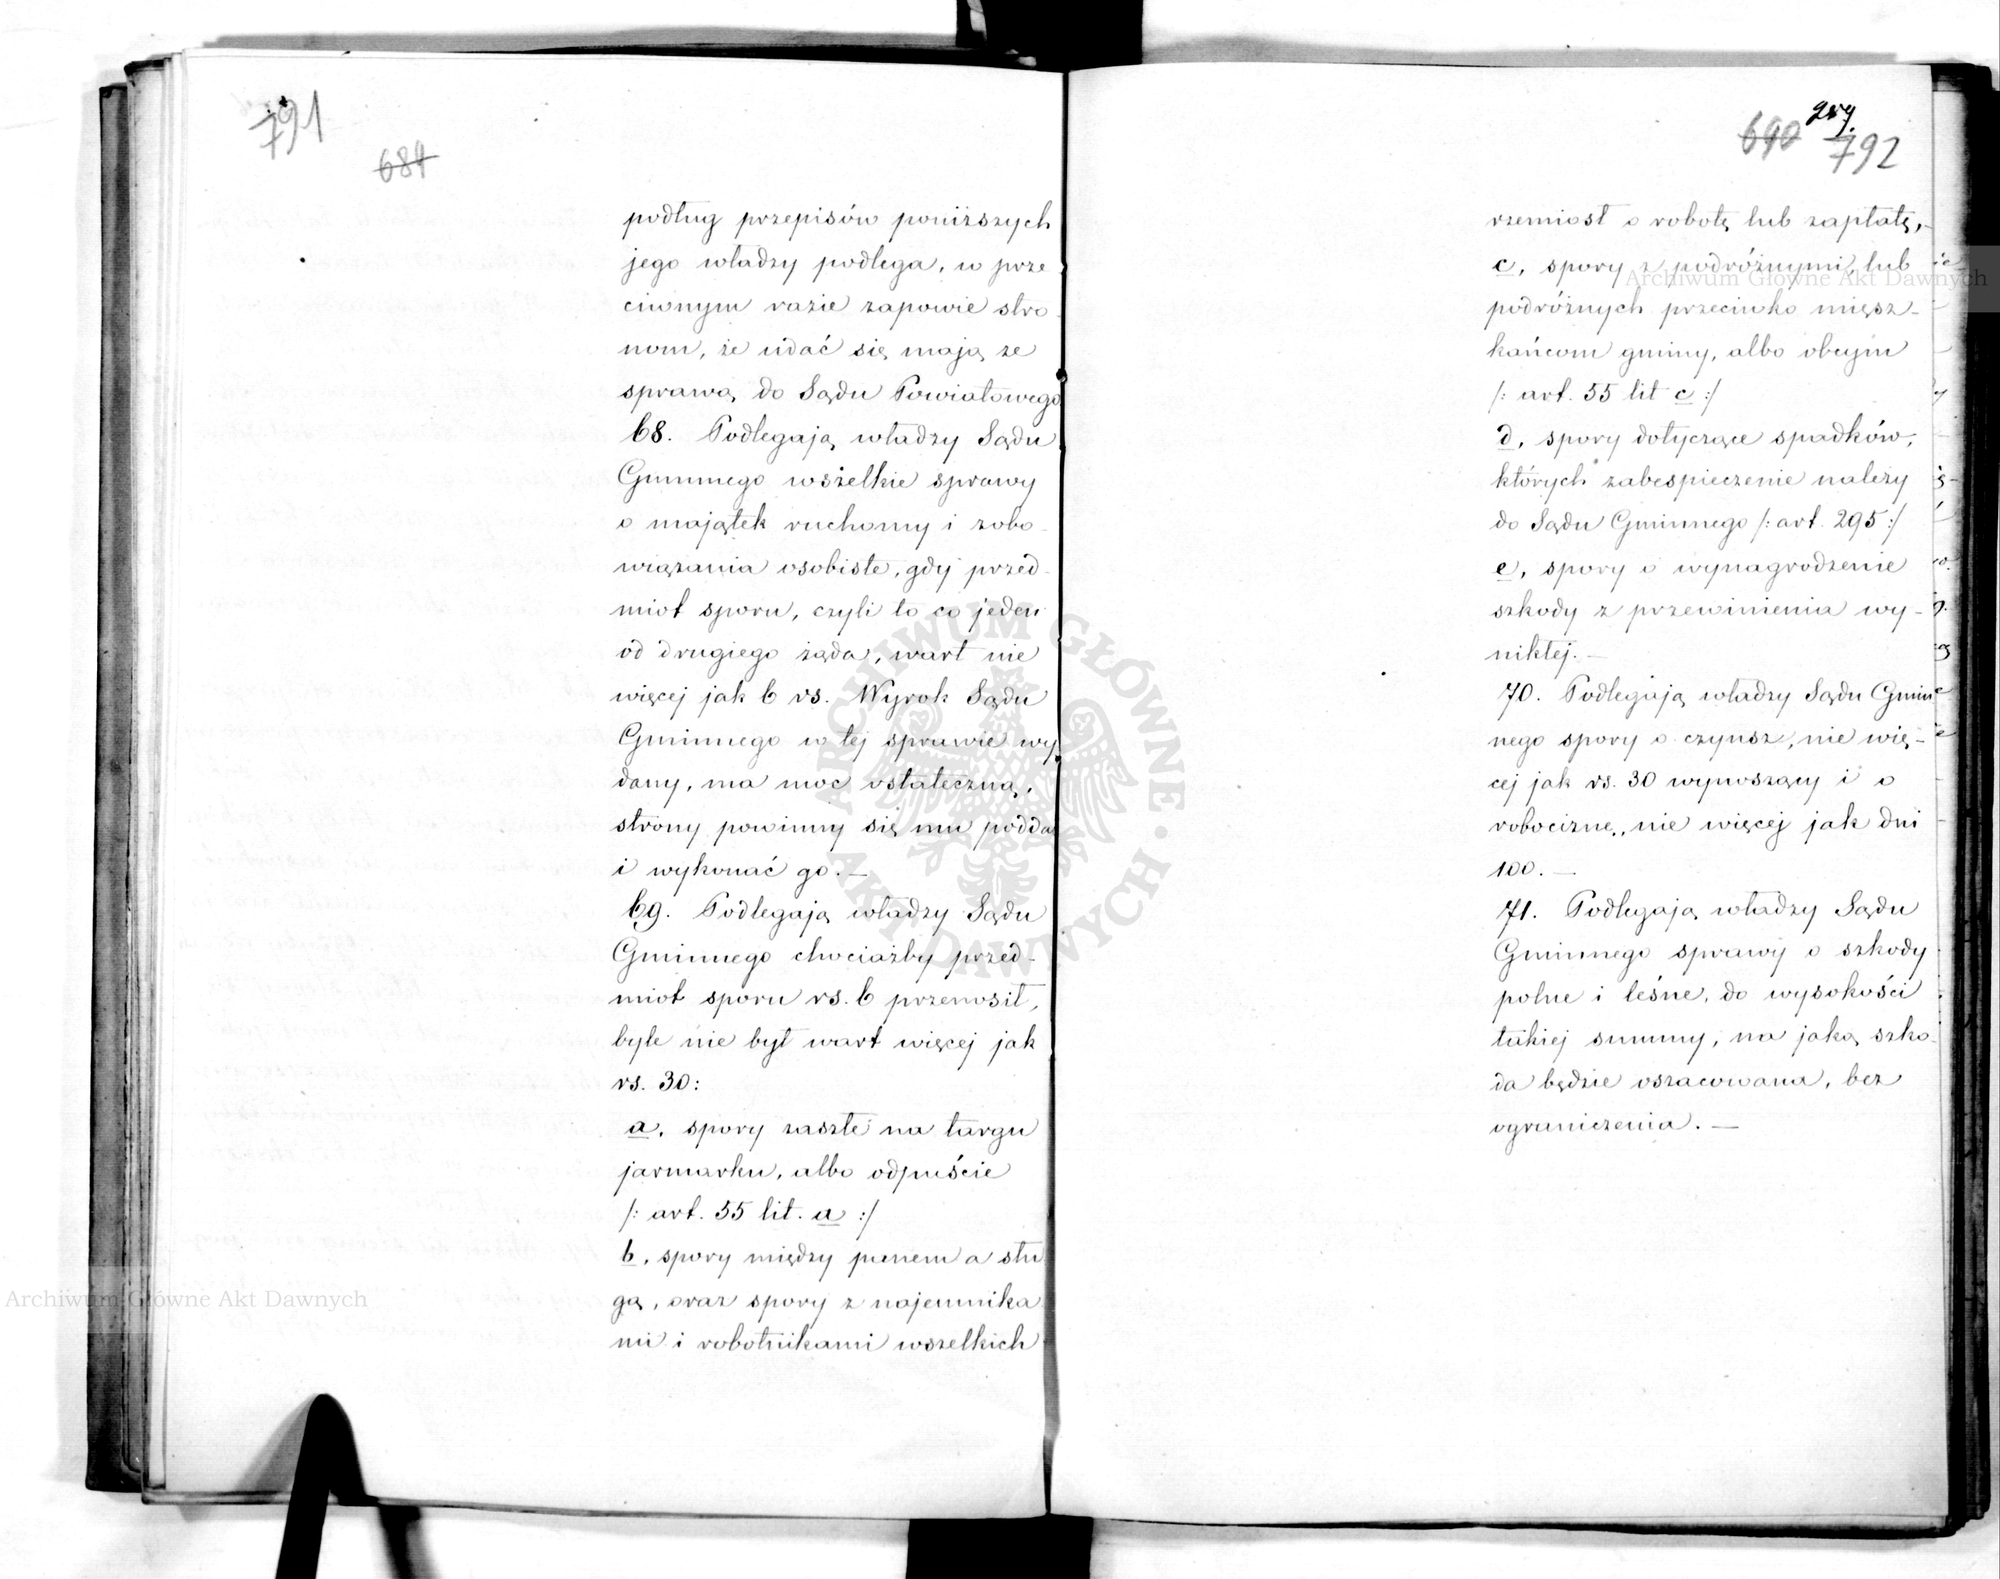 791
684
podług przepisów poniższych
jego władzy podlega, w prze
ciwnym razie zapowie stro-
nom, że udać się mają ze
sprawą do Sądu Powiatowego
68. Podlegają władzy Sądu
Gminnego wszelkie sprawy
o majątek ruchomy i zobo-
wiązania osobiste, gdy przed-
miot sporu, czyli to co jeden
od drugiego żąda, wart nie
więcej jak 6 rs. Wyrok Sądu
Gminnego w tej sprawie wy
dany, ma moc ostateczną,
strony powinny się mu podda
i wykonać go. —
69. Podlegają władzy Sądu
Gminnego chociażby przed-
miot sporu rs. 6 przenosił,
byle nie był wart więcej jak
rs. 30:
a, spory zaszłe na targu
jarmarku, albo odpuście
/: art. 55 lit. a :/
b, spory między panem a słu
gą, oraz spory z najemnika
mi i robotnikami wszelkich
690 792
rzemiosł o robotę lub zapłatę,
c, spory z podróżnymi, lub
podróżnych przeciwko miesz-
kańcom gminy, albo obcym
/: art. 55 lit c :/
d, spory dotyczące spadków,
których zabespieczenie należy
do Sądu Gminnego /: art. 295 :/
e, spory o wynagrodzenie
szkody z przewinienia wy-
nikłej. —
70. Podlegają władzy Sądu Gmin
nego spory o czynsz, nie wię-
cej jak rs. 30 wynoszący i o
robociznę, nie więcej jak dni
100. —
71. Podlegają władzy Sądu
Gminnego sprawy o szkody
polne i leśne, do wysokości
takiej summy, na jaką szko-
da będzie oszacowana, bez
ograniczenia. —
Archiwum Główne Akt Dawnych
Archiwum Główne Akt Dawnych
ARCHIWUM GŁÓWNE AKT DAWNYCH